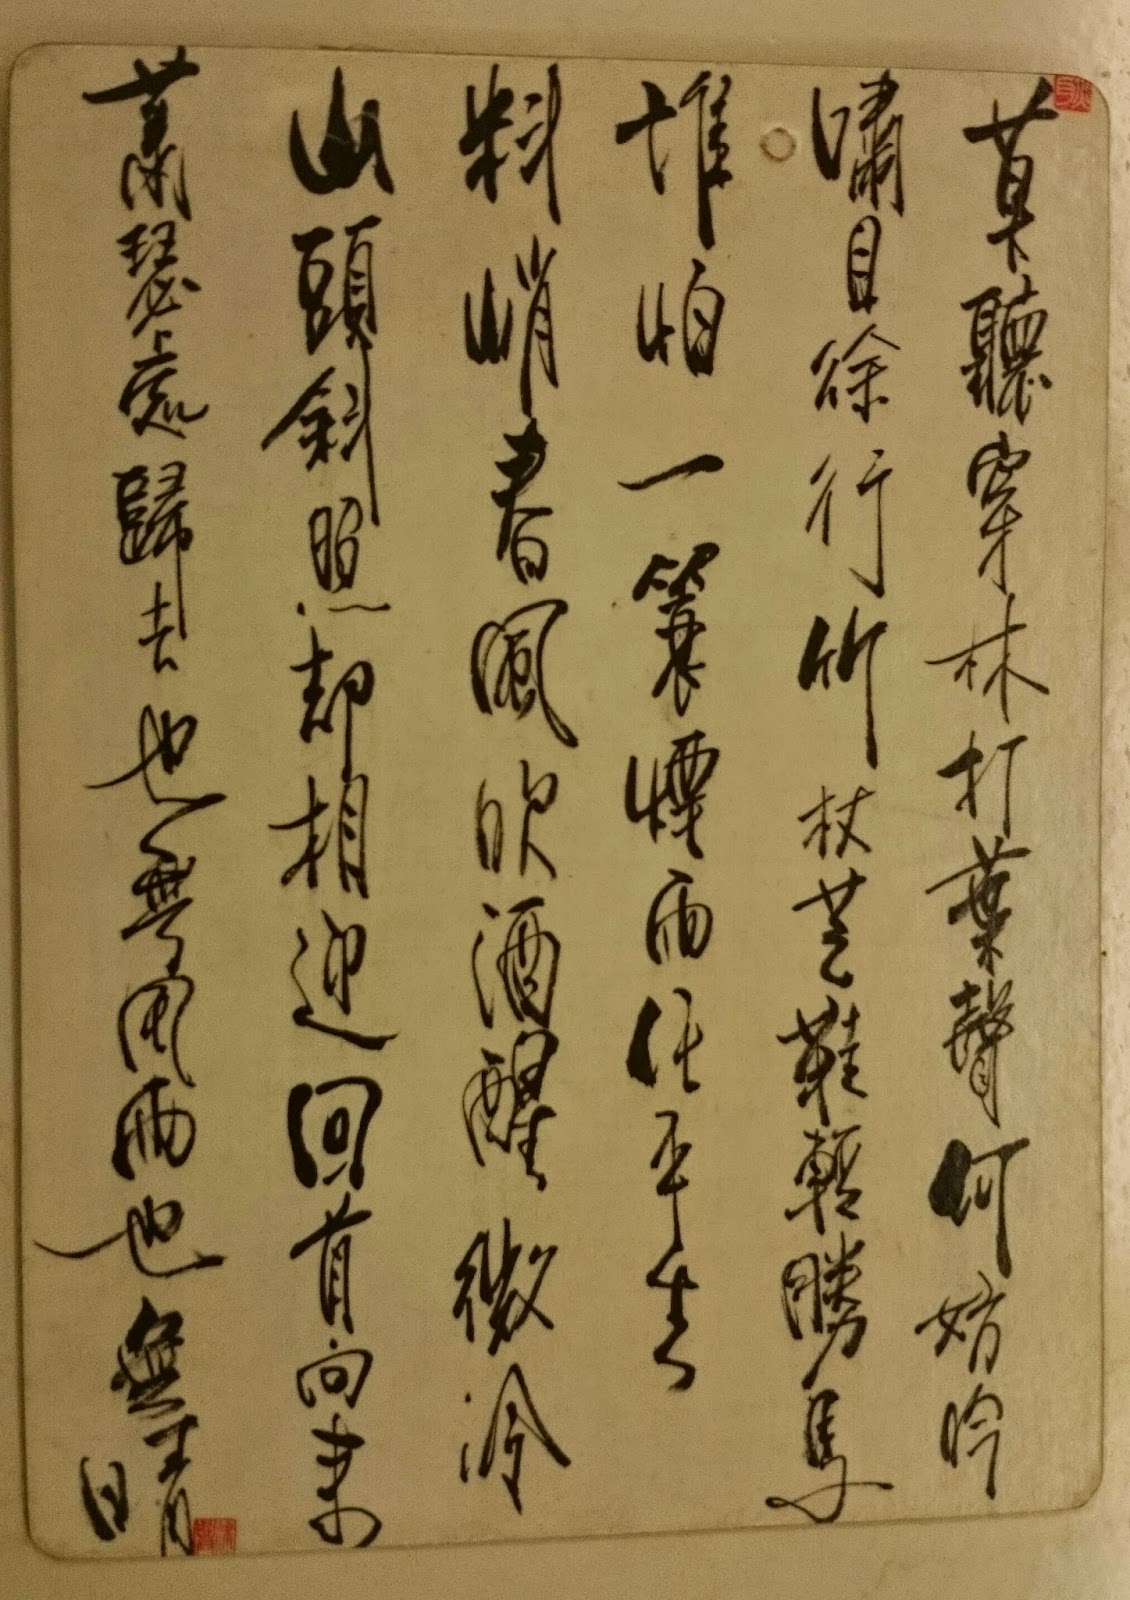 莫聽穿林打葉聲何妨吟
嘯且徐行竹杖芒鞋輕勝馬
誰怕一簑煙雨任平生
料峭春風吹酒醒微冷
山頭斜照却相迎回首向來
蕭瑟處歸去也無風雨也無晴